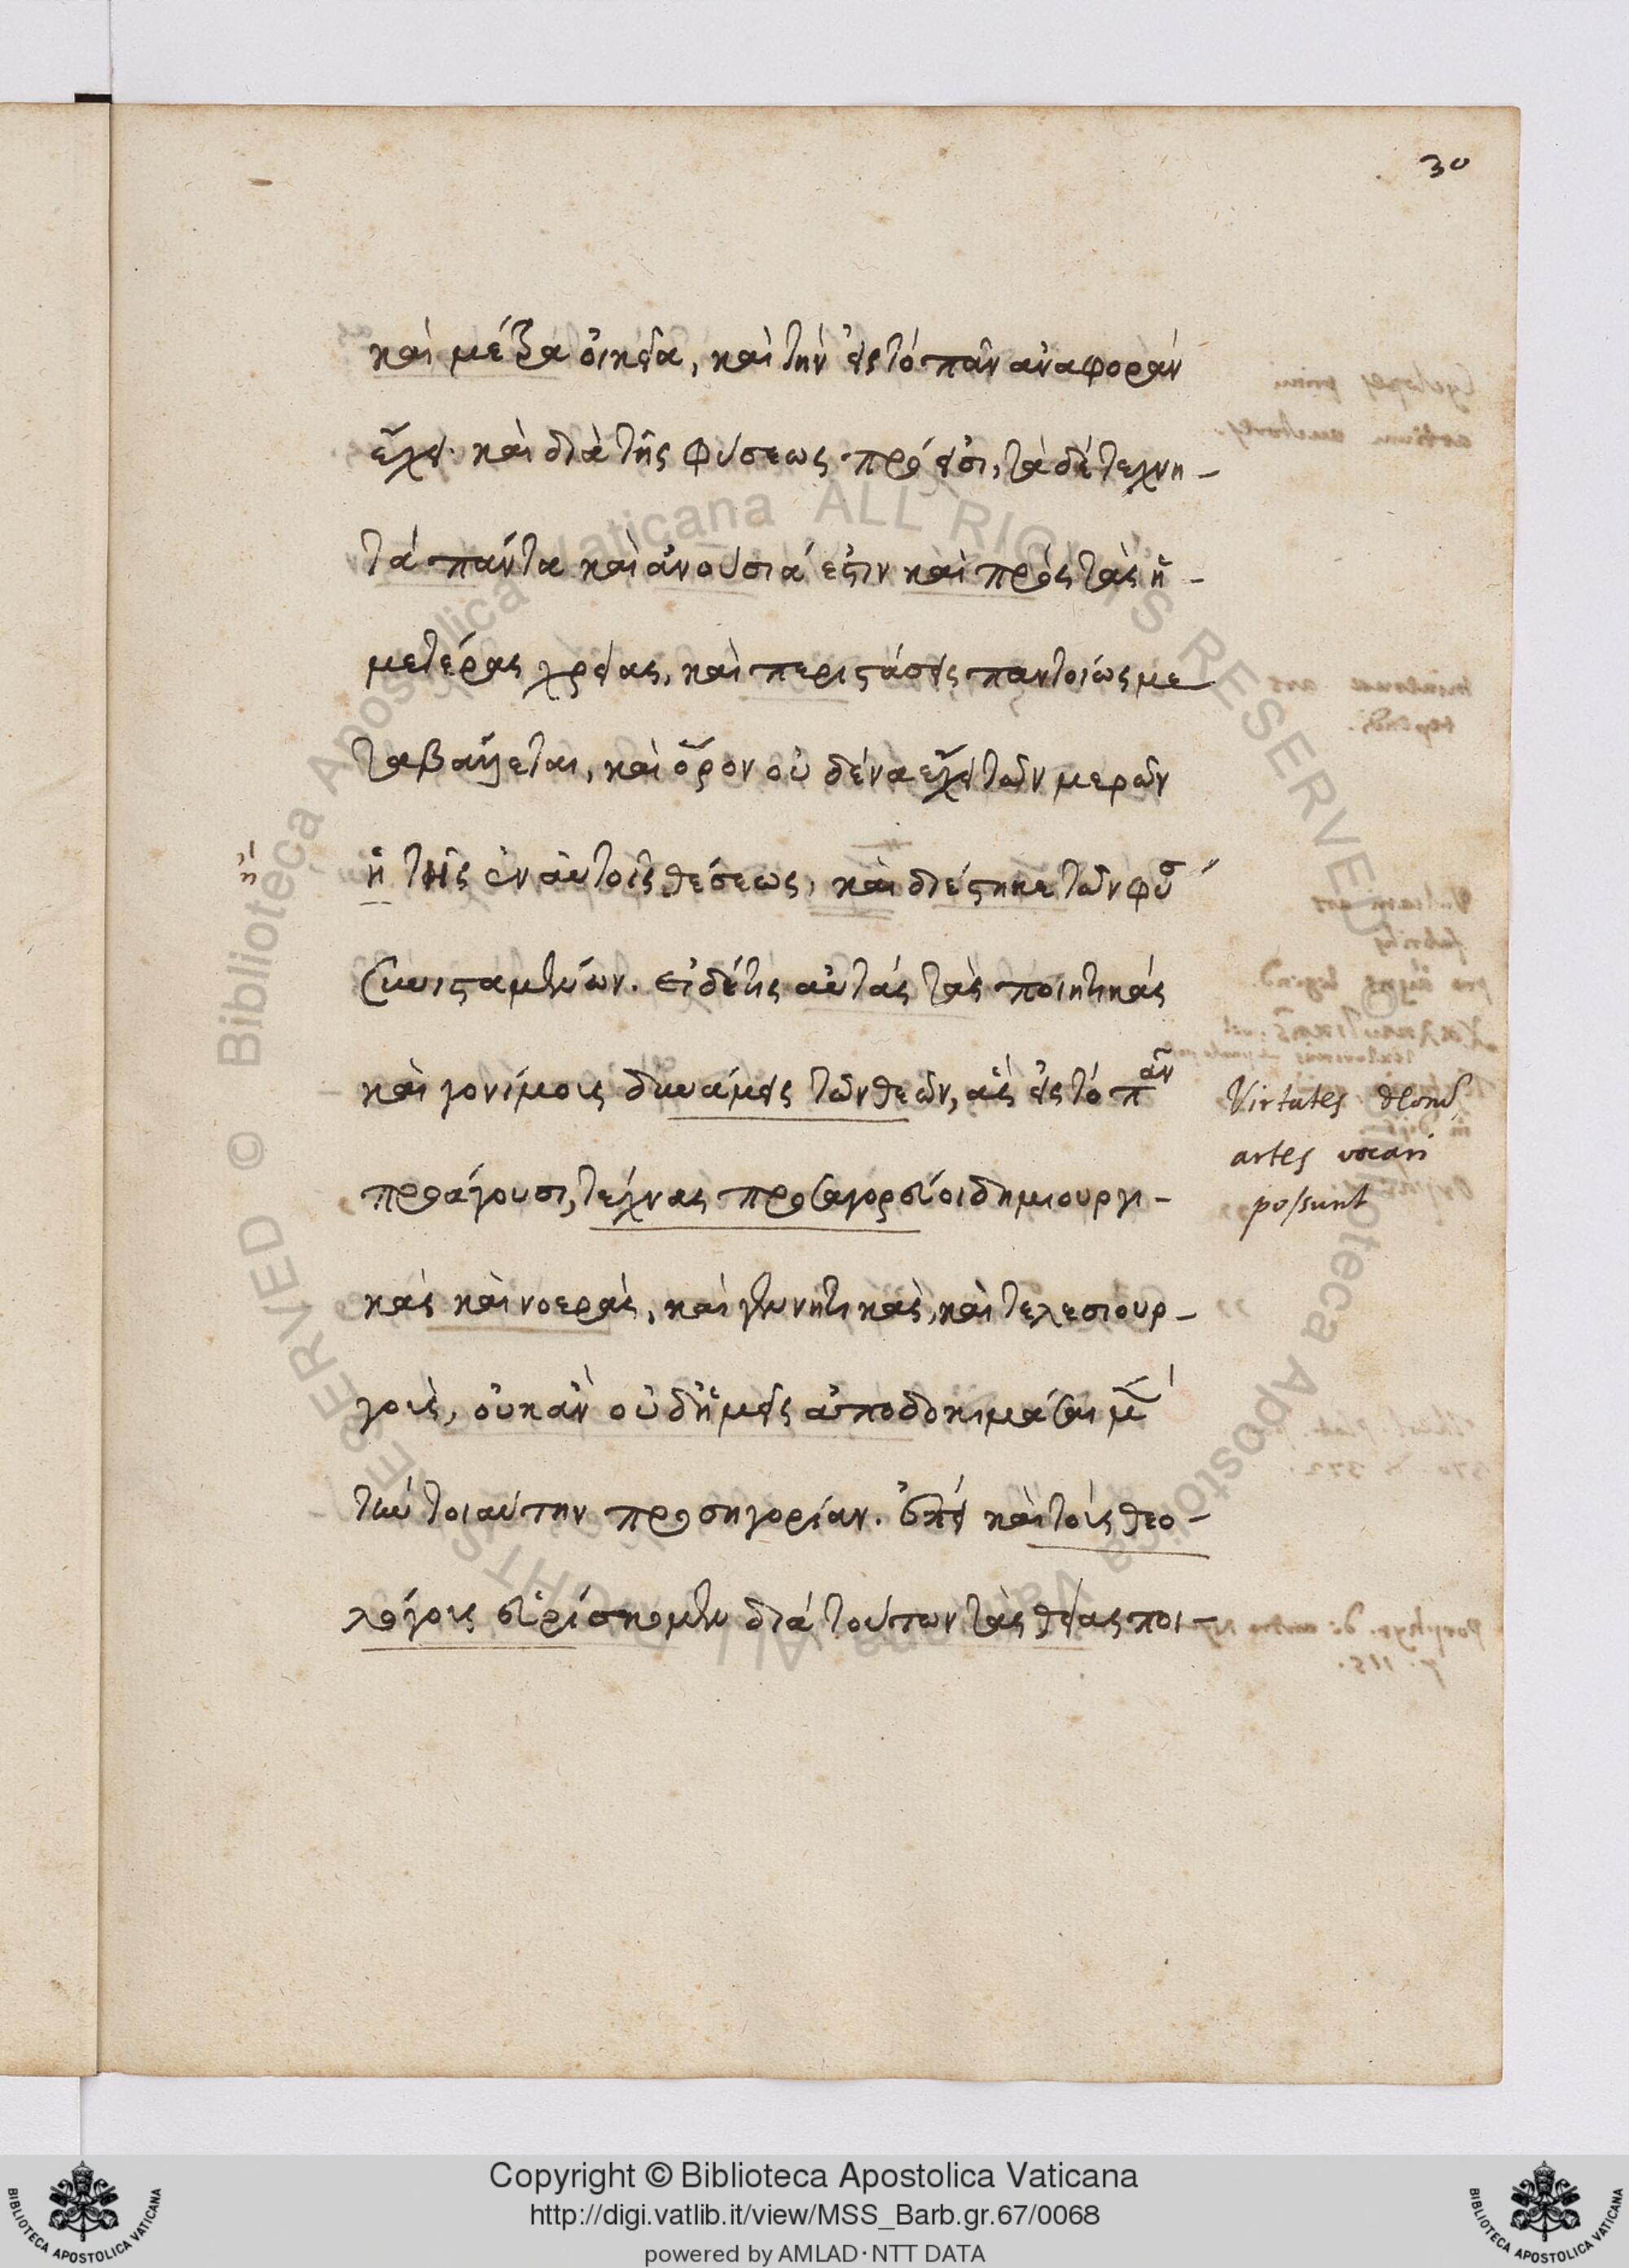 30
καὶ μέτρα οἰκεῖα, καὶ τὴν εἰς τὸ πᾶν ἀναφορὰν
ἔχει. καὶ διὰ τῆς φύσεως πρόεισι, τὰ δὲ τεχνη-
τὰ πάντα καὶ ἀνούσιά ἐστιν καὶ πρὸς τὰς ἡ-
μετέρας χρείας, καὶ περιστάσεις παντοίως με
ταβάλλεται, καὶ ὅρον οὐδένα ἔχει τῶν μερῶν
ἢ τῆς ἐν αὐτοῖς θέσεως, καὶ διέστηκε τῶν φύσ
συνισταμένων. εἰ δέ τις αὐτὰς τὰς ποιητικὰς
καὶ γονίμους δυνάμεις τῶν θεῶν, ἃς εἰς τὸ πᾶν
προάγουσι, τέχνας προσαγορεύοι δημιουργι-
κὰς καὶ νοερὰς, καὶ γεννητικὰς, καὶ τελεσιουρ-
γοὺς, οὐκ ἂν οὐδ' ἡμεῖς ἀποδοκιμάσαιμεν
τὴν τοιαύτην προσηγορίαν. ἐπεὶ καὶ τοὺς θεο-
λόγους εὑρίσκομεν διὰ τούτων τὰς θείας ποι-
Virtutes deorum
artes vocari
possunt
Copyright © Biblioteca Apostolica Vaticana
http://digi.vatlib.it/view/MSS_Barb.gr.67/0068
powered by AMLAD·NTT DATA
BIBLIOTECA APOSTOLICA VATICANA
BIBLIOTECA APOSTOLICA VATICANA